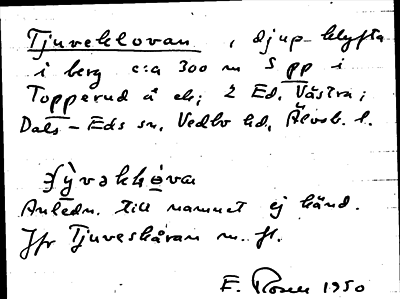 Tjuveklovan, djup klyfta
i berg c:a 300 m S pp i
Topperud å ek; 2 Ed, Västra;
Dals-Eds sn, Vedbo hd, Älvsb. l.
Anledn. till namnet ej känd.
Jfr Tjuveskåran m. fl.
E. Rosen 1950